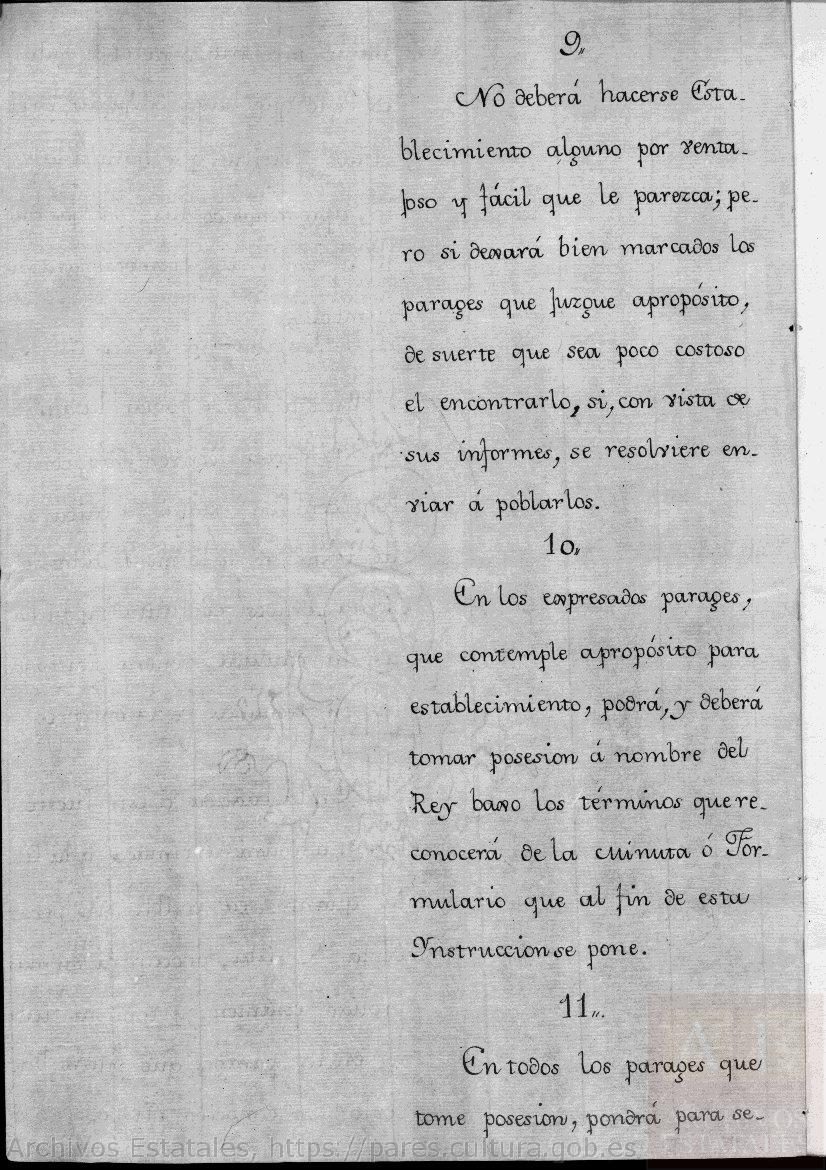 9,,
No deberá hacerse Esta-
blecimiento alguno por venta-
joso y fácil que le parezca; pe-
ro si dexará bien marcados los
parages que juzgue apropósito,
de suerte que sea poco costoso
el encontrarlo, si, con vista de
sus informes, se resolviere en-
viar á poblarlos.
10,,
En los expresados parages,
que contemple apropósito para
establecimiento, podrá, y deberá
tomar posesion á nombre del
Rey baxo los términos que re-
conocerá de la Minuta ó For-
mulario que al fin de esta
Ynstruccion se pone.
11,,.
En todos los parages que
tome posesion, pondrá para se-
Archivos Estatales, https://pares.cultura.gob.es